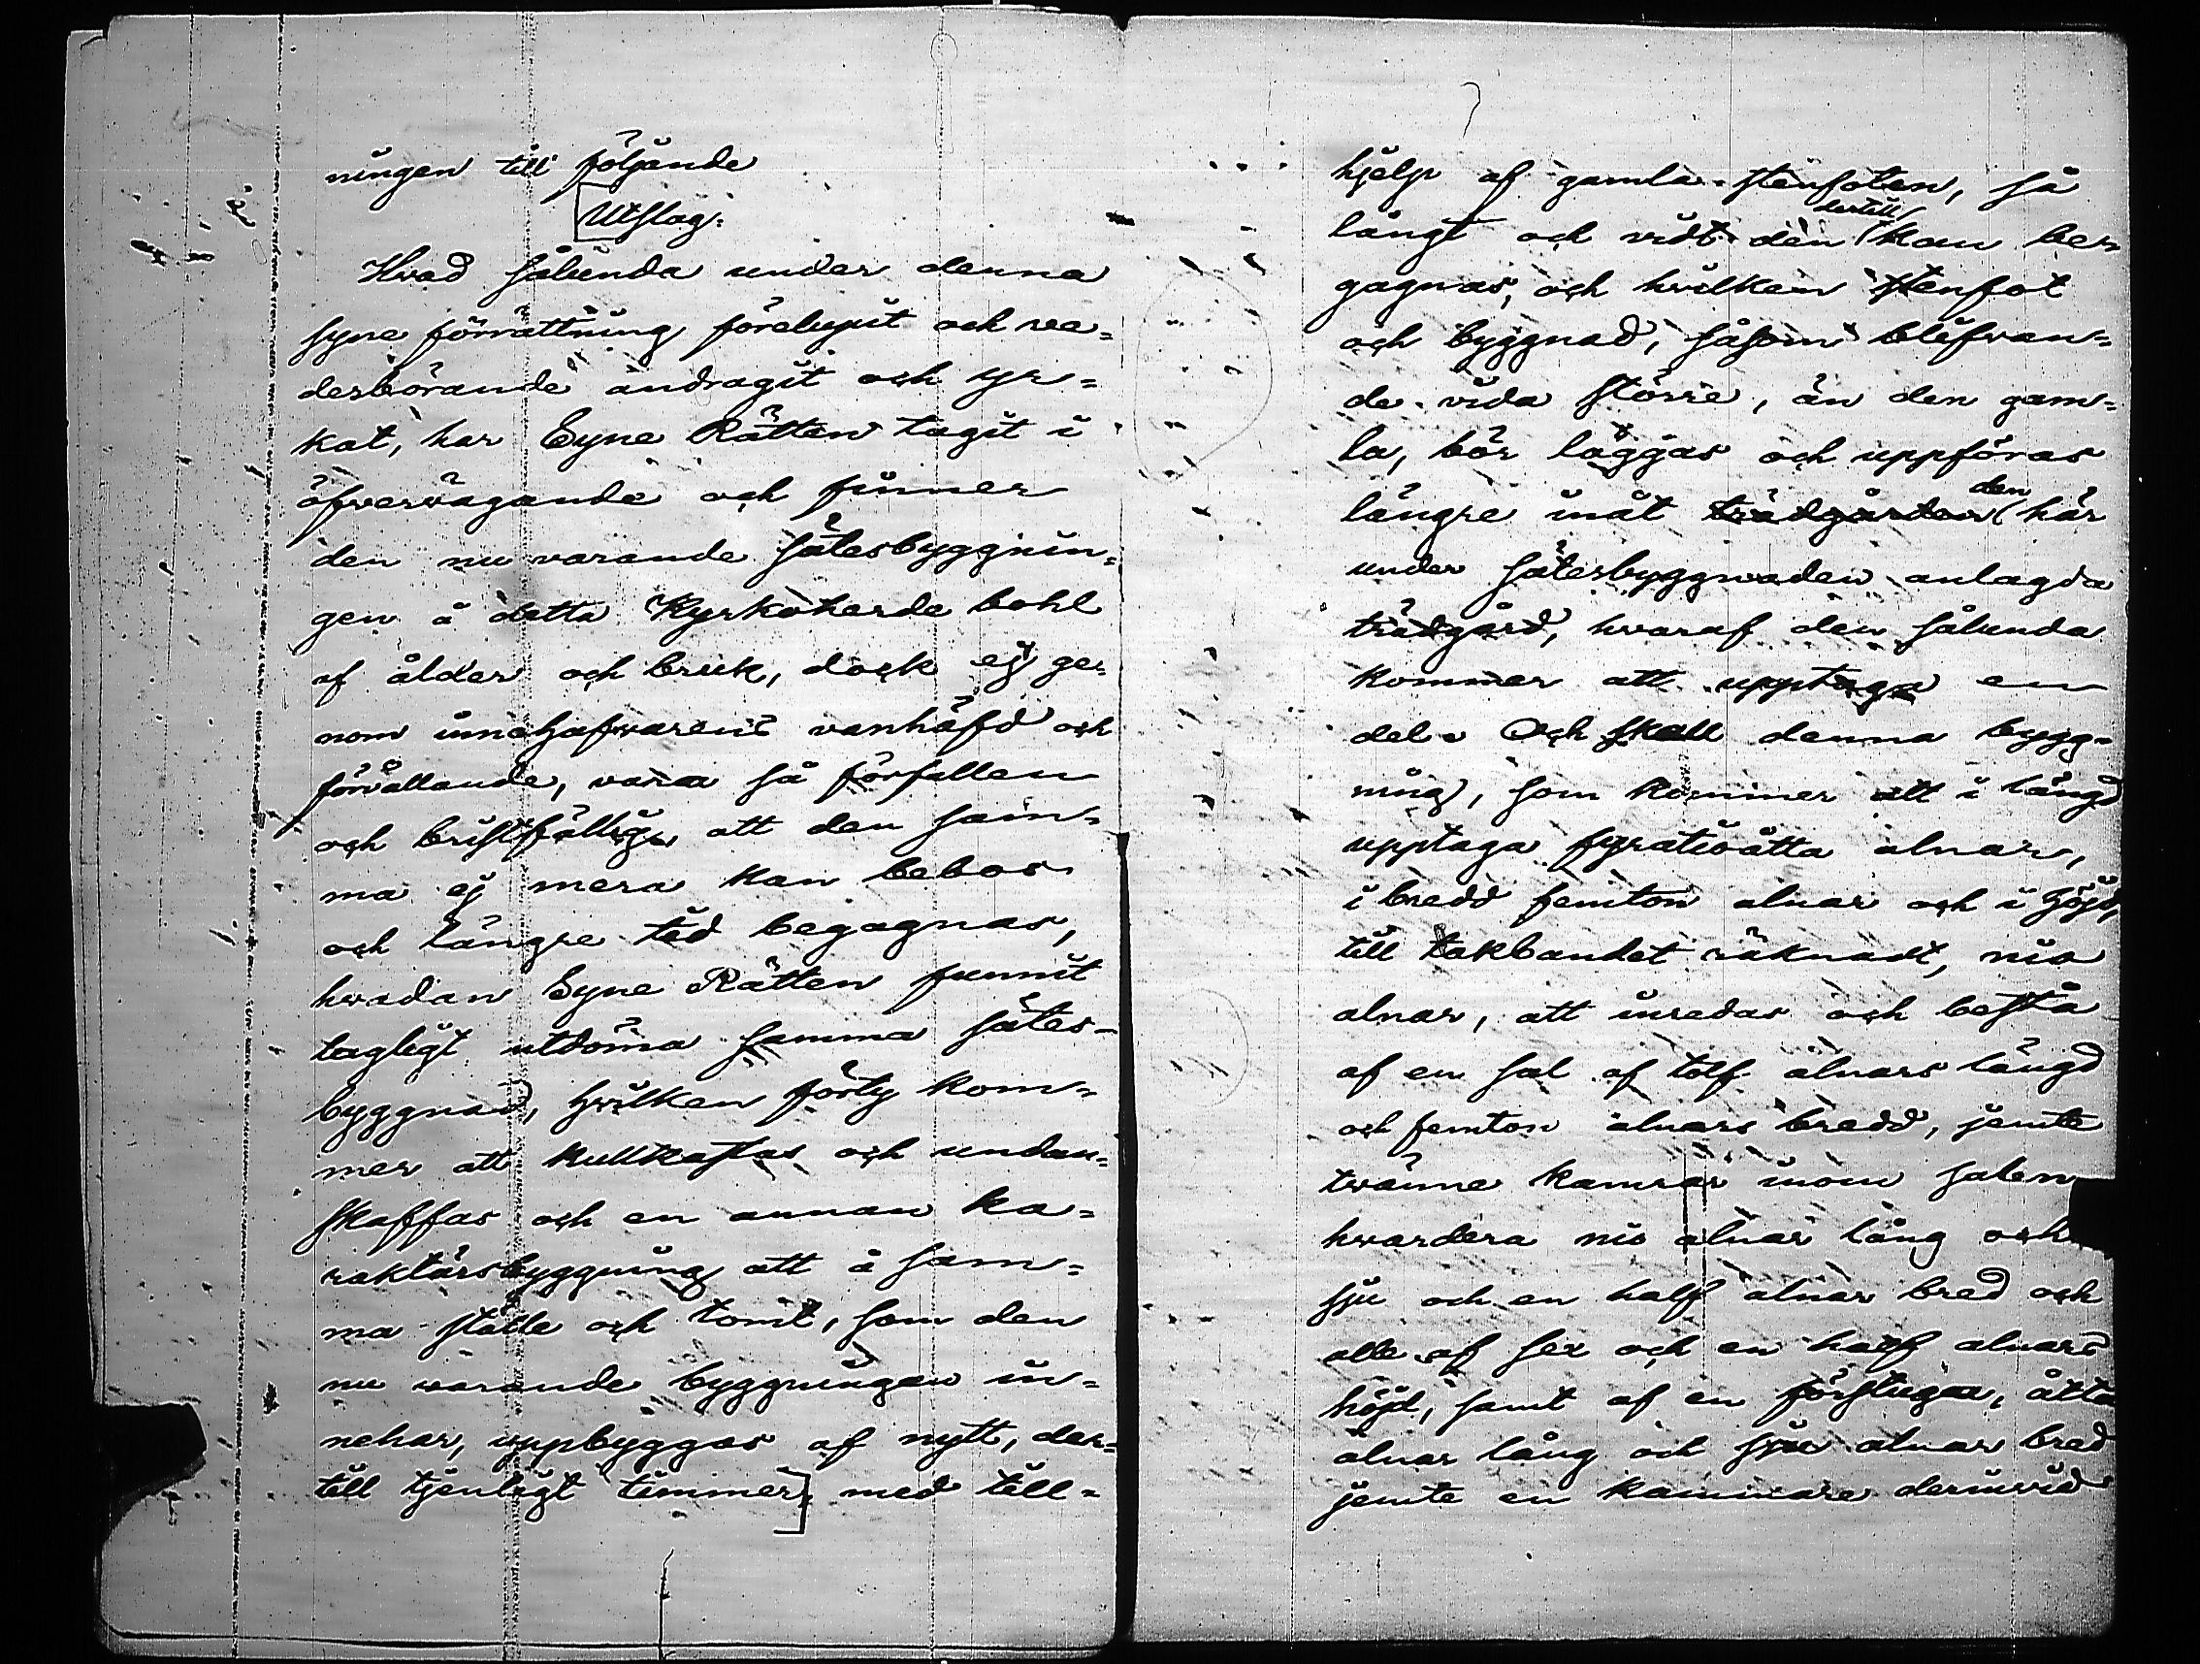 ningen till följande
[Utslag:
Hvad sålunda under denna
syne förrättning förelupit och ve=
derbörande andragit och yr=
kat, har Syne Rätten tagit i
öfvervägande och finner
den nu varande sätesbyggnin=
gen å detta Kyrkoherde bohl
af ålder och bruk, dock ej ge=
nom innehafvarens vanhäfd och
förvållande, vara så förfallen
och bristfällig, att den sam=
ma ej mera kan bebos
och längre tid begagnas,
hvadan Syne Rätten funnit
lagligt utdöma samma sätes=
byggnad, hvilken förty kom=
mer att kullkastas och undan=
skaffas och en annan ka=
raktärsbyggning att å sam=
ma ställe och tomt, som den
nu varande byggningen in=
nehar, uppbyggas af nytt, der=
till tjenligt timmer] med till=
hjelp af gamla stenfoten, så
långt och vidt den dertill kan be=
gagnas, och hvilken stenfot
och byggnad, såsom blifvan=
de vida större, än den gam=
la, bör läggas och uppföras
längre inåt trädgården den här
under sätesbyggnaden anlagda
trädgård, hvaraf den sålunda
kommer att upptaga en
del. Och skall denna bygg=
ning, som kommer att i längd
upptaga fyratioåtta alnar,
i bredd femton alnar och i höjd,
till takbandet räknadt, nio
alnar, att inredas och bestå
af en sal af tolf alnars längd
och femton alnars bredd, jemte
tvänne kamrar inom salen
hvardera nio alnar lång och
sju och en half alnar bred och
alla af sex och en half alnars
höjd, samt af en förstuga, åtta
alnar lång och sju alnar bred
jemte en kammare derinvid